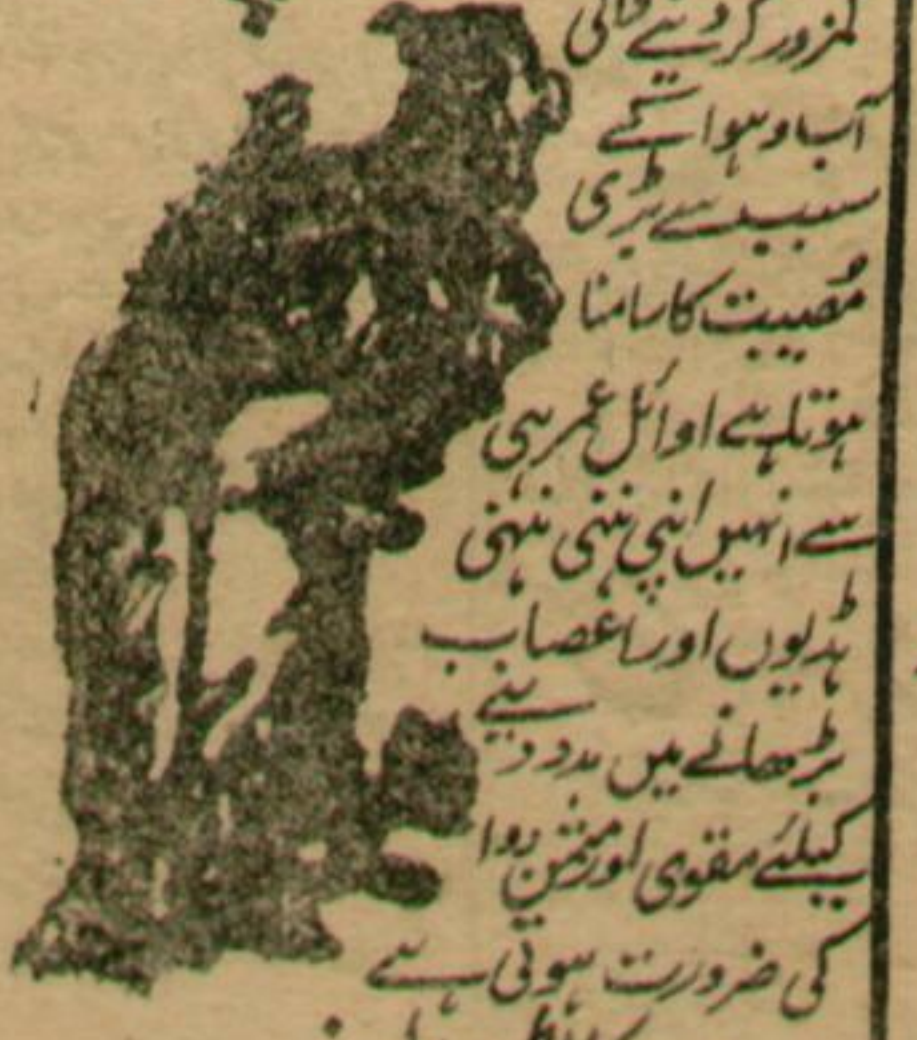 کمزور کر دینے والی
آب و ہوا کے
سبب سے بڑی
مُصیبت کا سامنا
ہوتا ہے اوائل عمر ہی
سے انہیں اپنی ننھی ننھی
ہڈیوں اور اعصاب
بڑھانے میں مدد دینے
کیلئے مقوی اور مثمن دوا
کی ضرورت ہوتی ہے